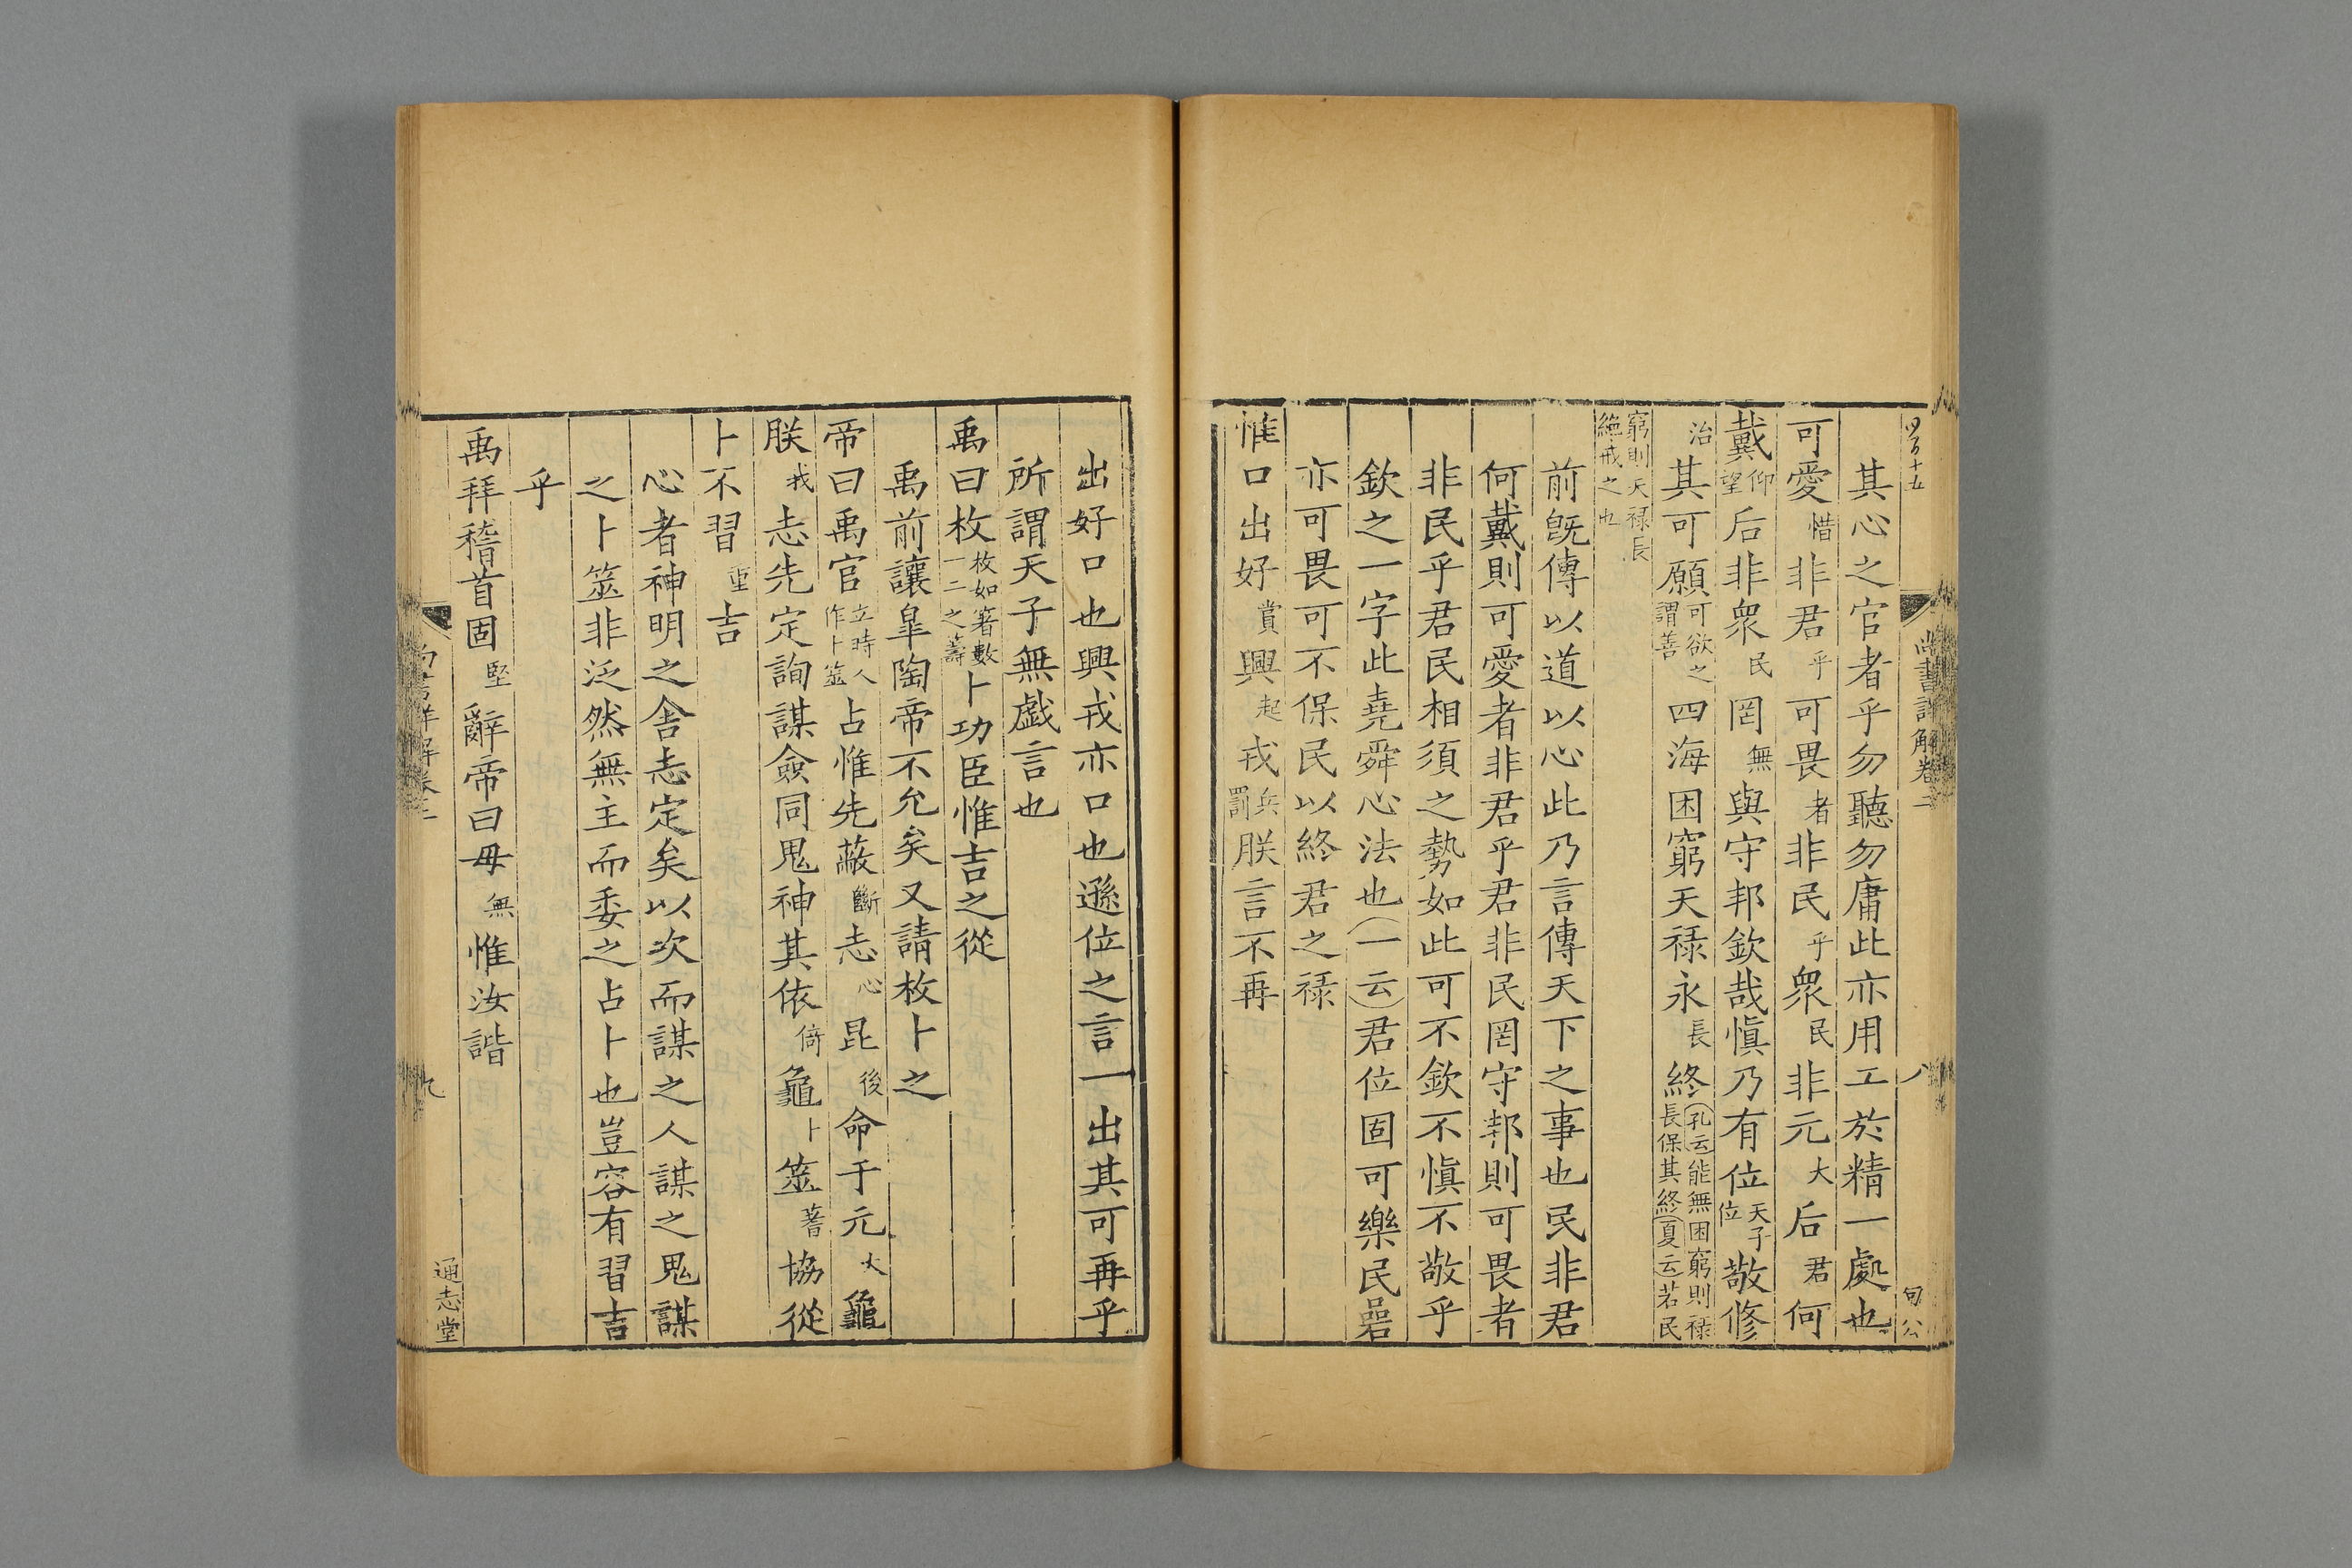 其心之官者乎勿聽勿庸此亦用工於精一處也
可愛惜非君乎可畏者非民乎衆民非元大后君何
戴仰望后非衆民罔無與守邦欽哉愼乃有位天子位敬修
治其可願可欲之謂善四海困窮天祿永長終孔云能無困窮則祿長保其終夏云若民
窮則天祿長絶戒之也
前旣傳以道以心此乃言傳天下之事也民非君
何戴則可愛者非君乎君非民罔守邦則可畏者
非民乎君民相須之勢如此可不欽不愼不敬乎
欽之一字此堯舜心法也(一云)君位固可樂民碞
亦可畏可不保民以終君之祿
惟口出好賞興起戎兵罰朕言不再
尚書詳解卷二
八
出好口也興戎亦口也遜位之言一出其可再乎
所謂天子無戲言也
禹曰枚枚如箸數一二之籌卜功臣惟吉之從
禹前讓皐陶帝不允矣又請枚卜之
帝曰禹官立時人作卜筮占惟先蔽斷志心昆後命于元大龜
朕我志先定詢謀僉同鬼神其依倚龜卜筮蓍協從
卜不習重吉
心者神明之舍志定矣以次而謀之人謀之鬼謀
之卜筮非泛然無主而委之占卜也豈容有習吉
乎
禹拜稽首固堅辭帝曰毋無惟汝諧
九
通志堂